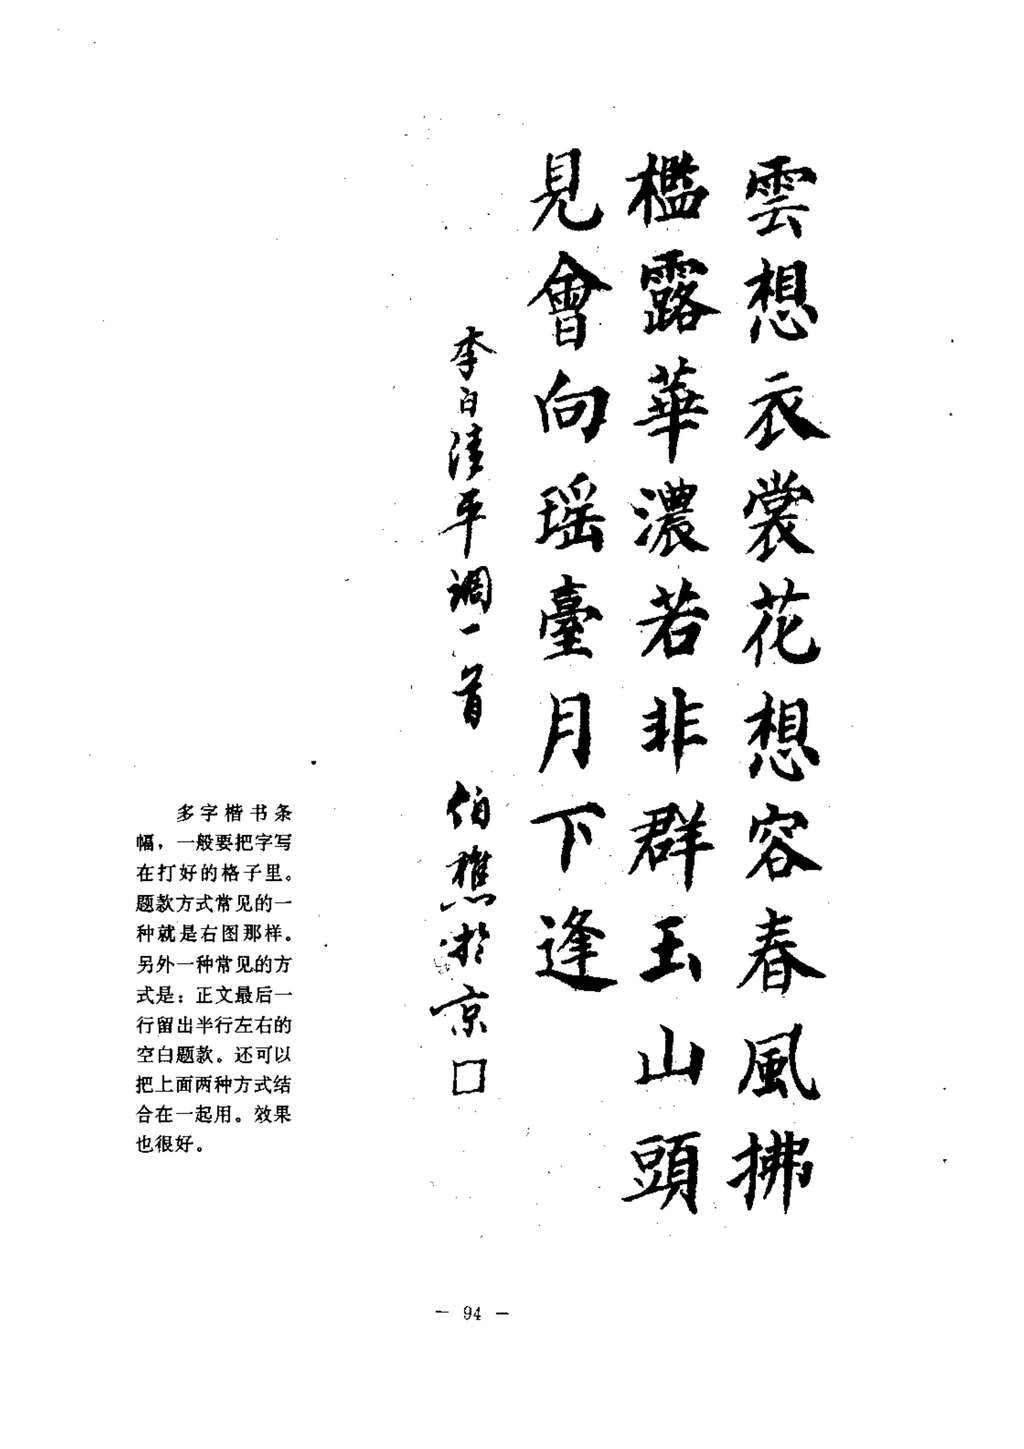 雲想衣裳花想容春風拂
檻露華濃若非群玉山頭
見會向瑶臺月下逢
李白清平调一首 伯樵於京
多字楷书条
幅，一般要把字写
在打好的格子里。
题款方式常见的一
种就是右图那样。
另外一种常见的方
式是：正文最后一
行留出半行左右的
空白题款。还可以
把上面两种方式结
合在一起用。效果
也很好。
— 94 —